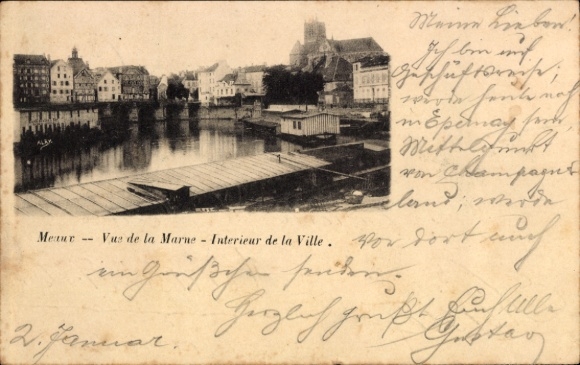 Meine Lieben!
Ich bin auf
Geschäftsreise;
werde heute noch
in Epernay sein,
Mittelpunkt
von Champagner
land; werde
von dort auch
ein Grüßchen senden.
Herzlich grüßt Euch Alle
Gustav
2. Januar.
Meaux -- Vue de la Marne - Interieur de la Ville .